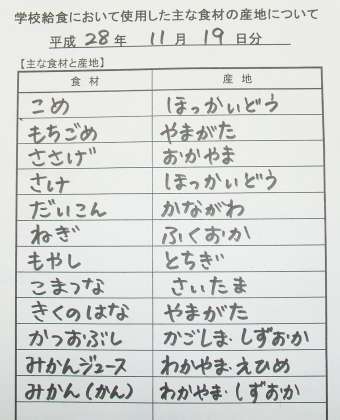 学校給食において使用した主な食材の産地について
平成 28 年 11 月 19 日分
【主な食材と産地】
食材 産地
こめ ほっかいどう
もちごめ やまがた
ささげ おかやま
さけ ほっかいどう
だいこん かながわ
ねぎ ふくおか
もやし とちぎ
こまつな さいたま
きくのはな やまがた
かつおぶし かごしま・しずおか
みかんジュース わかやま・えひめ
みかん(かん) わかやま・しずおか